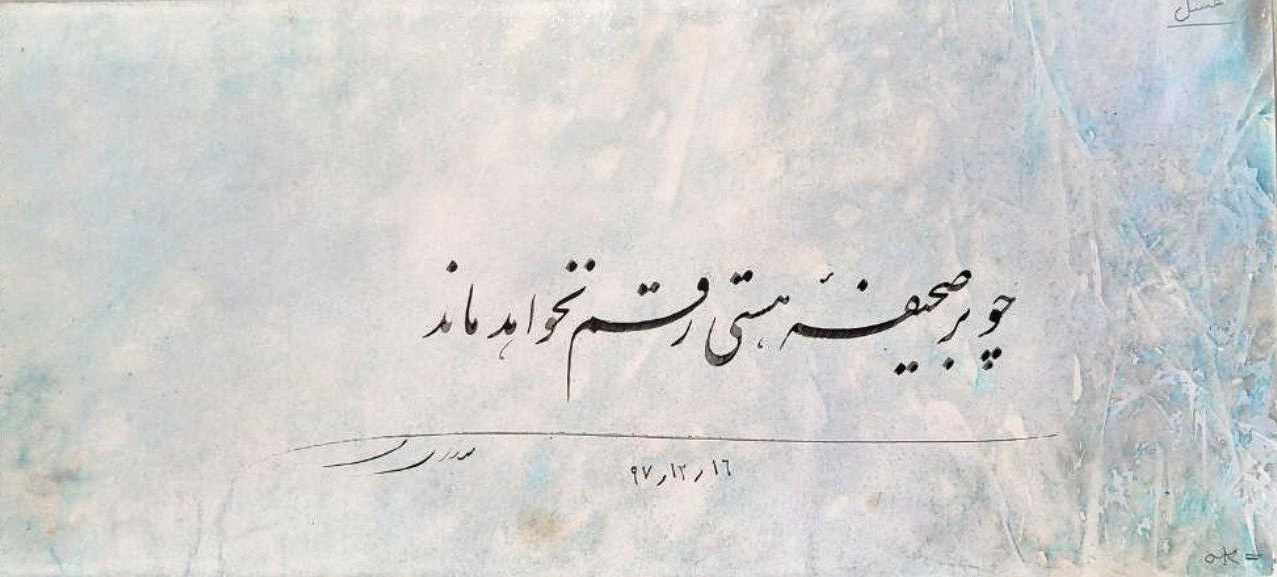 چو بر صحیفهٔ هستی رقم نخواهد ماند
۹۷٫۱۲٫۱۶